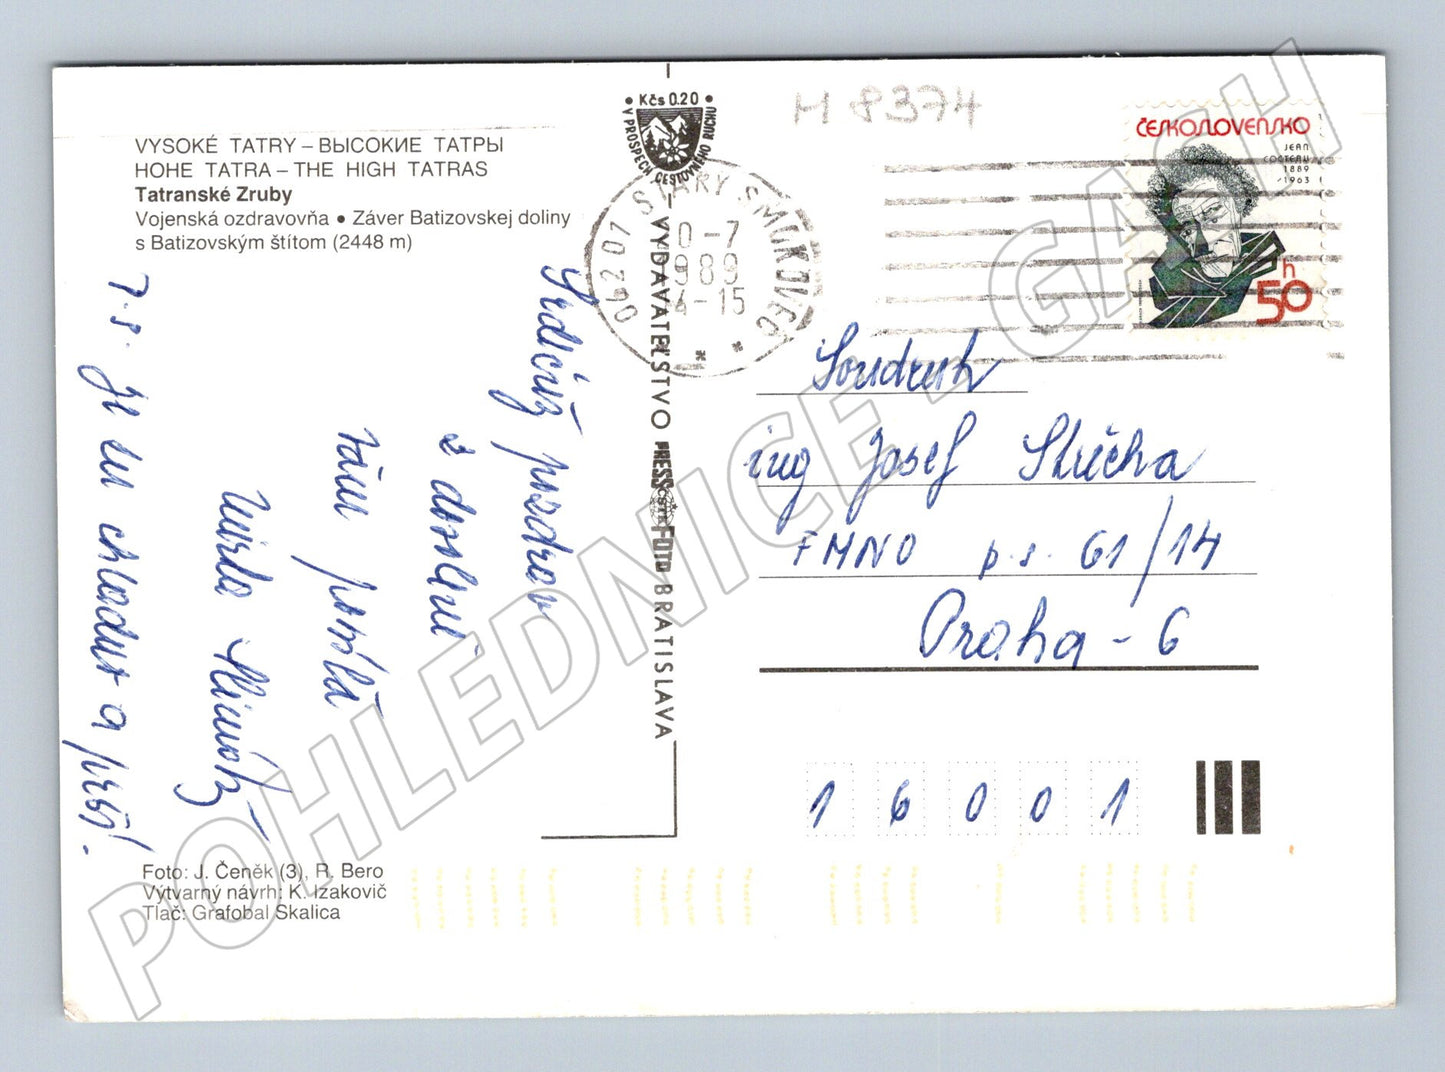 H 8374
VYSOKÉ TATRY – ВЫСОКИЕ ТАТРЫ
HOHE TATRA – THE HIGH TATRAS
Tatranské Zruby
Vojenská ozdravovňa • Záver Batizovskej doliny
s Batizovským štítom (2448 m)
• Kčs 0.20 •
V PROSPECH CESTOVNÉHO RUCHU
062 07 STARÝ SMOKOVEC
0-7
989
4-15
ČESKOSLOVENSKO
JEAN
COCTEAU
1889
1963
50 h
VYDAVATEĽSTVO PRESSFOTO BRATISLAVA
ČSTK
Srdečný pozdrav
z dovolené
Vám posílá
Mirda
7.8. Je zde chladno a prší!
Soudruh
ing Josef
FMNO p.s. 61/14
Praha - 6
16001
Foto: J. Čeněk (3), R. Bero
Výtvarný návrh: K. Izakovič
Tlač: Grafobal Skalica
POHLEDNICE - GASH